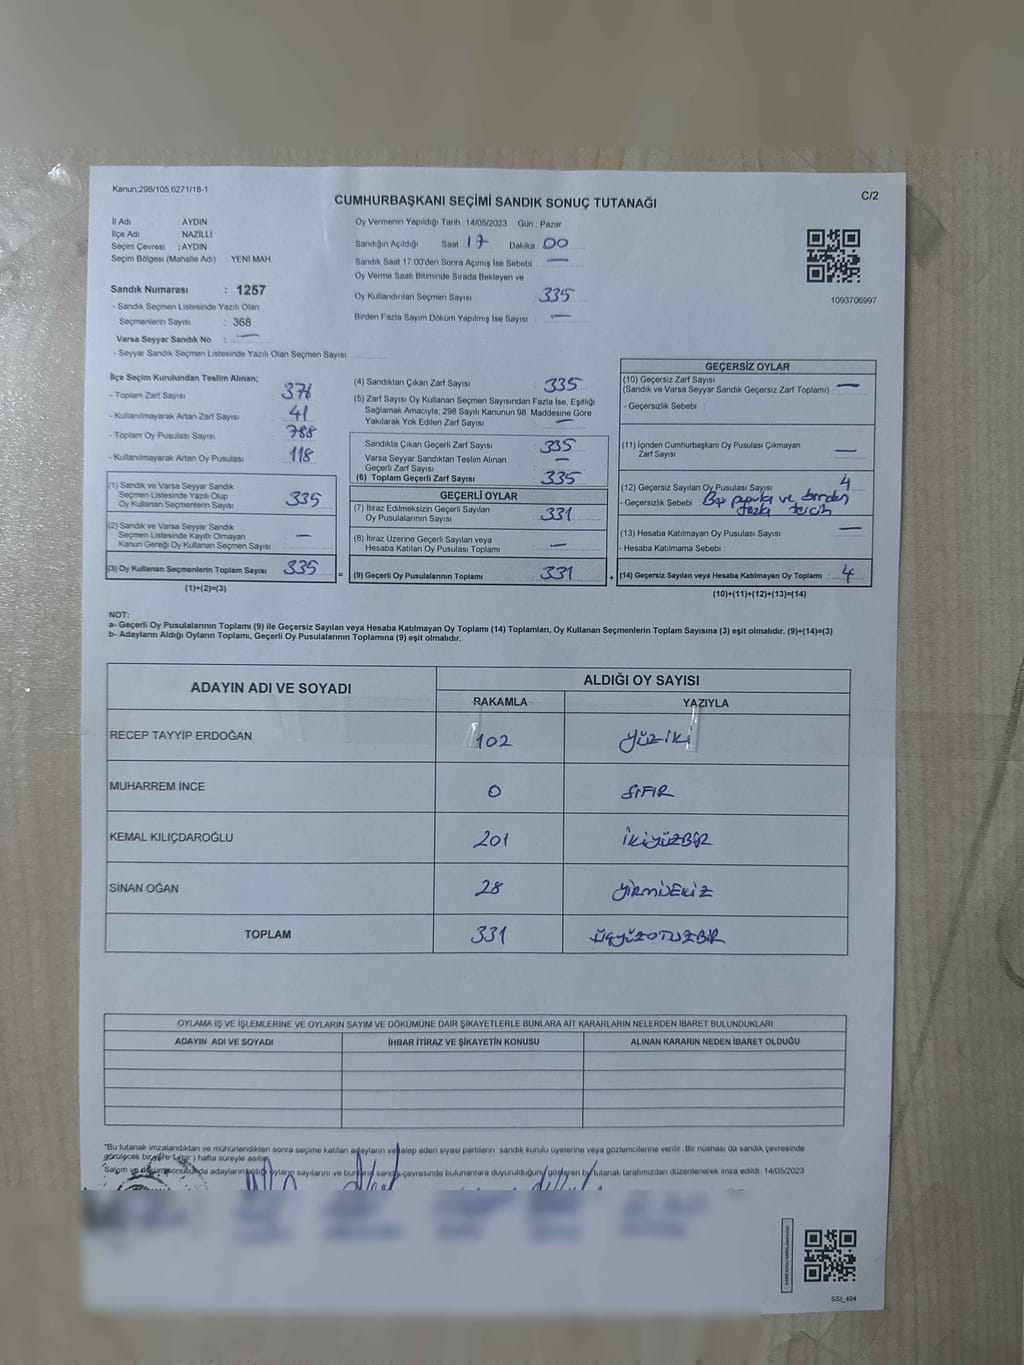 Kanun,298/105,6271/18-1
C/2
CUMHURBAŞKANI SEÇİMİ SANDIK SONUÇ TUTANAĞI
İl Adı : AYDIN
İlçe Adı : NAZİLLİ
Seçim Çevresi : AYDIN
Seçim Bölgesi (Mahalle Adı) : YENİ MAH.
Sandık Numarası : 1257
- Sandık Seçmen Listesinde Yazılı Olan
Seçmenlerin Sayısı : 368
Varsa Seyyar Sandık No : —
- Seyyar Sandık Seçmen Listesinde Yazılı Olan Seçmen Sayısı
Oy Vermenin Yapıldığı Tarih : 14/05/2023 Gün : Pazar
Sandığın Açıldığı Saat 17 Dakika 00
Sandık Saat 17:00'den Sonra Açımış İse Sebebi —
Oy Verme Saati Bitiminde Sırada Bekleyen ve
Oy Kullandırılan Seçmen Sayısı 335
Birden Fazla Sayım Döküm Yapılmış İse Sayısı —
1093706997
İlçe Seçim Kurulundan Teslim Alınan;
- Toplam Zarf Sayısı : 376
- Kullanılmayarak Artan Zarf Sayısı : 41
- Toplam Oy Pusulası Sayısı : 788
- Kullanılmayarak Artan Oy Pusulası : 118
(1) Sandık ve Varsa Seyyar Sandık
Seçmen Listesinde Yazılı Olup
Oy Kullanan Seçmenlerin Sayısı : 335
(2) Sandık ve Varsa Seyyar Sandık
Seçmen Listesinde Kayıtlı Olmayan
Kanun Gereği Oy Kullanan Seçmen Sayısı : —
(3) Oy Kullanan Seçmenlerin Toplam Sayısı : 335
(1)+(2)=(3)
(4) Sandıktan Çıkan Zarf Sayısı : 335
(5) Zarf Sayısı Oy Kullanan Seçmen Sayısından Fazla İse, Eşitliği
Sağlamak Amacıyla; 298 Sayılı Kanunun 98. Maddesine Göre
Yakılarak Yok Edilen Zarf Sayısı : —
Sandıkta Çıkan Geçerli Zarf Sayısı : 335
Varsa Seyyar Sandıktan Teslim Alınan
Geçerli Zarf Sayısı : —
(6) Toplam Geçerli Zarf Sayısı : 335
GEÇERLİ OYLAR
(7) İtiraz Edilmeksizin Geçerli Sayılan
Oy Pusulalarının Sayısı : 331
(8) İtiraz Üzerine Geçerli Sayılan veya
Hesaba Katılan Oy Pusulası Toplamı : —
= (9) Geçerli Oy Pusulalarının Toplamı : 331 +
GEÇERSİZ OYLAR
(10) Geçersiz Zarf Sayısı
(Sandık ve Varsa Seyyar Sandık Geçersiz Zarf Toplamı) : —
- Geçersizlik Sebebi :
(11) İçinden Cumhurbaşkanı Oy Pusulası Çıkmayan
Zarf Sayısı : —
(12) Geçersiz Sayılan Oy Pusulası Sayısı : 4
- Geçersizlik Sebebi : Boş pusula ve birden
fazla tercih
(13) Hesaba Katılmayan Oy Pusulası Sayısı : —
- Hesaba Katılmama Sebebi :
(14) Geçersiz Sayılan veya Hesaba Katılmayan Oy Toplamı : 4
(10)+(11)+(12)+(13)=(14)
NOT:
a- Geçerli Oy Pusulalarının Toplamı (9) ile Geçersiz Sayılan veya Hesaba Katılmayan Oy Toplamı (14) Toplamları, Oy Kullanan Seçmenlerin Toplam Sayısına (3) eşit olmalıdır. (9)+(14)=(3)
b- Adayların Aldığı Oyların Toplamı, Geçerli Oy Pusulalarının Toplamına (9) eşit olmalıdır.
ADAYIN ADI VE SOYADI ALDIĞI OY SAYISI
RAKAMLA YAZIYLA
RECEP TAYYİP ERDOĞAN 102 YÜZİKİ
MUHARREM İNCE 0 SIFIR
KEMAL KILIÇDAROĞLU 201 İKİYÜZBİR
SİNAN OĞAN 28 YİRMİSEKİZ
TOPLAM 331 ÜÇYÜZOTUZBİR
OYLAMA İŞ VE İŞLEMLERİNE VE OYLARIN SAYIM VE DÖKÜMÜNE DAİR ŞİKAYETLERLE BUNLARA AİT KARARLARIN NELERDEN İBARET BULUNDUKLARI
ADAYIN ADI VE SOYADI İHBAR İTİRAZ VE ŞİKAYETİN KONUSU ALINAN KARARIN NEDEN İBARET OLDUĞU
"Bu tutanak imzalandıktan ve mühürlendikten sonra seçime katılan adayların ve talep eden siyasi partilerin sandık kurulu üyelerine veya gözlemcilerine verilir. Bir nüshası da sandık çevresinde
görülecek bir yere 1 (bir) hafta süreyle asılır.
Sayım ve döküm sonucunda adayların aldığı oyların sayılarını ve bunların sandık çevresinde bulunanlara duyurulduğunu gösteren bu tutanak tarafımızdan düzenlenerek imza edildi. 14/05/2023
SSI_404